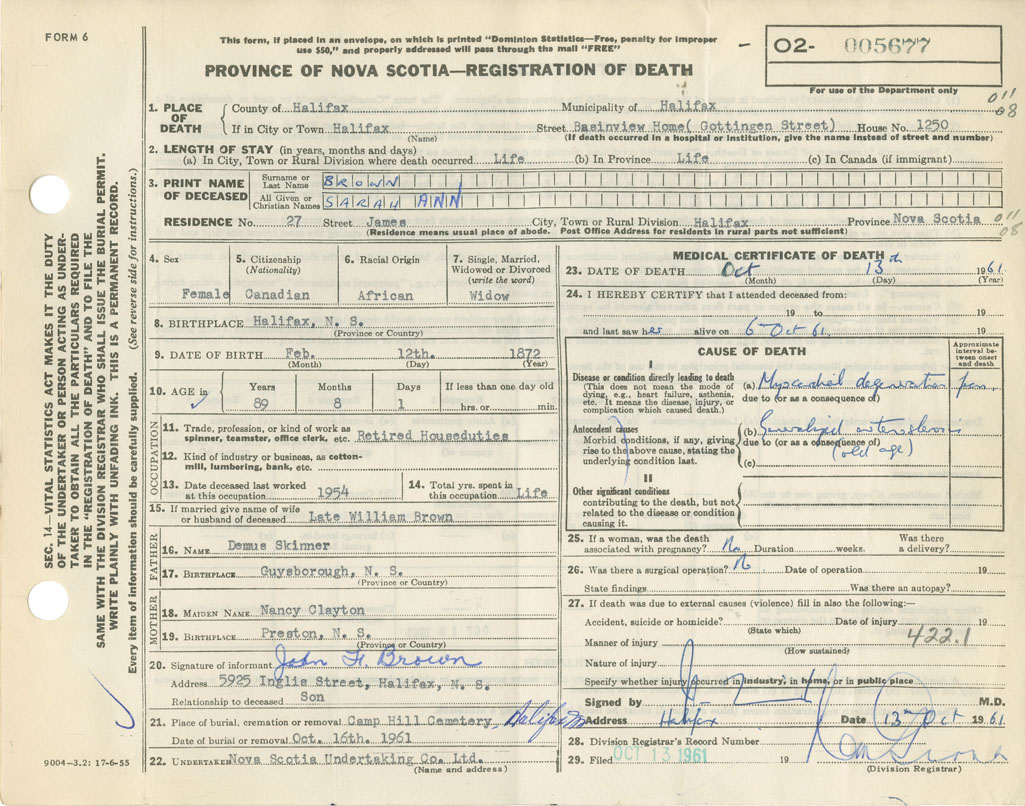 FORM 6
This form, if placed in an envelope, on which is printed "Dominion Statistics—Free, penalty for improper
use $50," and properly addressed will pass through the mail "FREE"
PROVINCE OF NOVA SCOTIA—REGISTRATION OF DEATH
02- 005677
For use of the Department only
011
08
SEC. 14—VITAL STATISTICS ACT MAKES IT THE DUTY
OF THE UNDERTAKER OR PERSON ACTING AS UNDER-
TAKER TO OBTAIN ALL THE PARTICULARS REQUIRED
IN THE "REGISTRATION OF DEATH" AND TO FILE THE
SAME WITH THE DIVISION REGISTRAR WHO SHALL ISSUE THE BURIAL PERMIT.
WRITE PLAINLY WITH UNFADING INK. THIS IS A PERMANENT RECORD.
Every item of information should be carefully supplied. (See reverse side for instructions.)
1. PLACE OF DEATH
County of Halifax Municipality of Halifax
If in City or Town Halifax Street Basinview Home( Gottingen Street) House No. 1250
(Name) (If death occurred in a hospital or institution, give the name instead of street and number)
2. LENGTH OF STAY (in years, months and days)
(a) In City, Town or Rural Division where death occurred Life (b) In Province Life (c) In Canada (if immigrant)
3. PRINT NAME OF DECEASED
Surname or Last Name BROWN
All Given or Christian Names SARAH ANN
RESIDENCE No. 27 Street James City, Town or Rural Division Halifax Province Nova Scotia
011
08
(Residence means usual place of abode. Post Office Address for residents in rural parts not sufficient)
4. Sex
Female
5. Citizenship
(Nationality)
Canadian
6. Racial Origin
African
7. Single, Married,
Widowed or Divorced
(write the word)
Widow
8. BIRTHPLACE Halifax, N. S.
(Province or Country)
9. DATE OF BIRTH Feb. 12th. 1872
(Month) (Day) (Year)
10. AGE in Years Months Days If less than one day old
89 8 1 hrs. or min.
OCCUPATION
11. Trade, profession, or kind of work as
spinner, teamster, office clerk, etc. Retired Houseduties
12. Kind of industry or business, as cotton-
mill, lumbering, bank, etc.
13. Date deceased last worked
at this occupation 1954
14. Total yrs. spent in
this occupation Life
15. If married give name of wife
or husband of deceased Late William Brown
FATHER
16. NAME Demus Skinner
17. BIRTHPLACE Guysborough, N. S.
(Province or Country)
MOTHER
18. MAIDEN NAME Nancy Clayton
19. BIRTHPLACE Preston, N. S.
(Province or Country)
20. Signature of informant John H. Brown
Address 5925 Inglis Street, Halifax, N. S.
Relationship to deceased Son
21. Place of burial, cremation or removal Camp Hill Cemetery Halifax
Date of burial or removal Oct. 16th. 1961
22. UNDERTAKER Nova Scotia Undertaking Co. Ltd.
(Name and address)
9004-3.2: 17-6-55
MEDICAL CERTIFICATE OF DEATH
23. DATE OF DEATH Oct 13th 1961
(Month) (Day) (Year)
24. I HEREBY CERTIFY that I attended deceased from:
19 to 19
and last saw her alive on 6 Oct 61 19
CAUSE OF DEATH
Approximate
interval be-
tween onset
and death
I
Disease or condition directly leading to death
(Does not mean the mode of
dying, e.g., heart failure, asthenia,
etc. It means the disease, injury, or
complication which caused death.)
(a) Myocardial degeneration
due to (or as a consequence of)
Antecedent causes
Morbid conditions, if any, giving
rise to the above cause, stating the
underlying condition last.
(b) Generalized arteriosclerosis
due to (or as a consequence of)
(old age)
(c)
II
Other significant conditions
contributing to the death, but not
related to the disease or condition
causing it.
25. If a woman, was the death
associated with pregnancy? No Duration weeks. Was there
a delivery?
26. Was there a surgical operation? N Date of operation 19
State findings Was there an autopsy?
27. If death was due to external causes (violence) fill in also the following:—
Accident, suicide or homicide? Date of injury 19
(State which)
422.1
Manner of injury
(How sustained)
Nature of injury
Specify whether injury occurred in industry, in home, or in public place
Signed by M.D.
Address Halifax Date 13th Oct 1961
28. Division Registrar's Record Number
29. Filed OCT 13 1961 19
(Division Registrar)